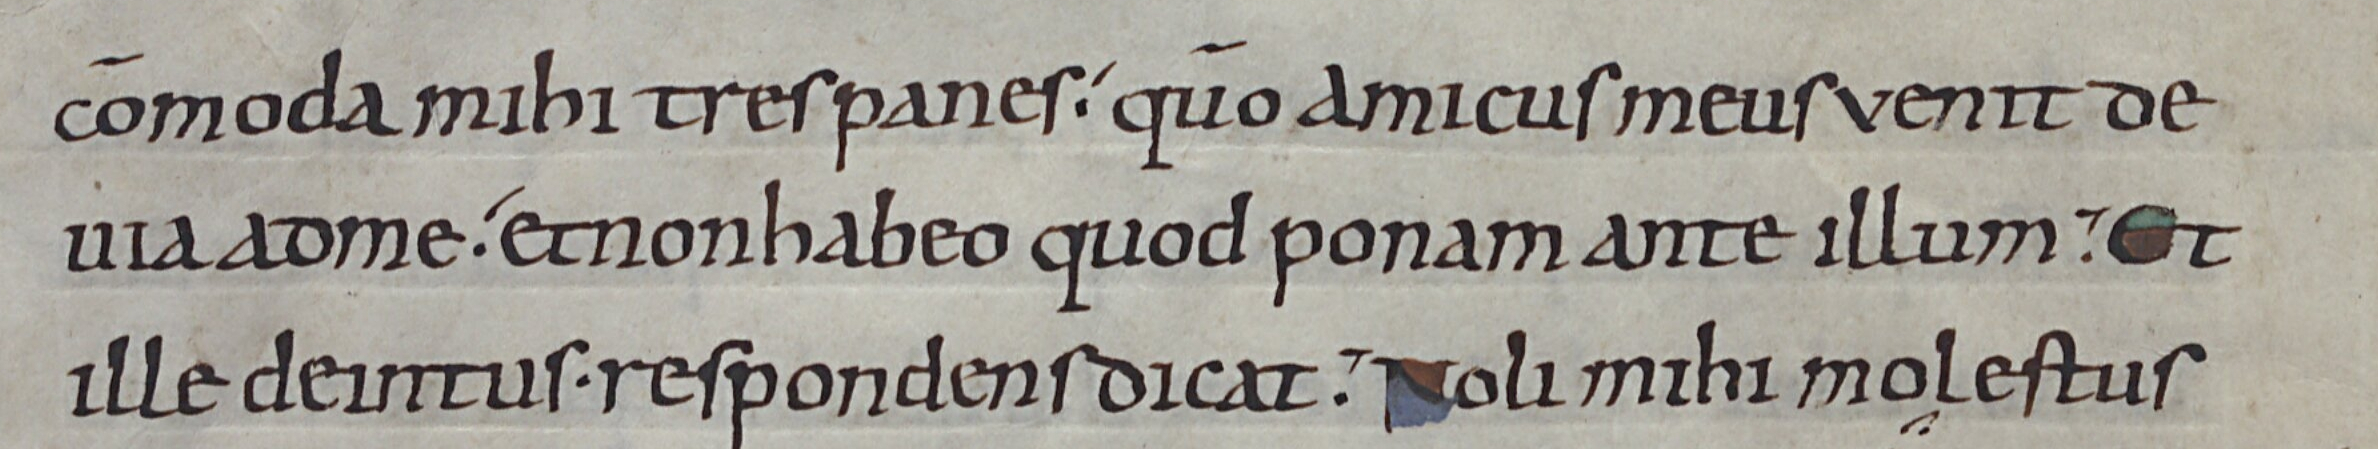 cōmoda mihi tres panes. quō amicus meus venit de
uia ad me. et non habeo quod ponam ante illum. Et
ille deintus. respondens dicat. Noli mihi molestus